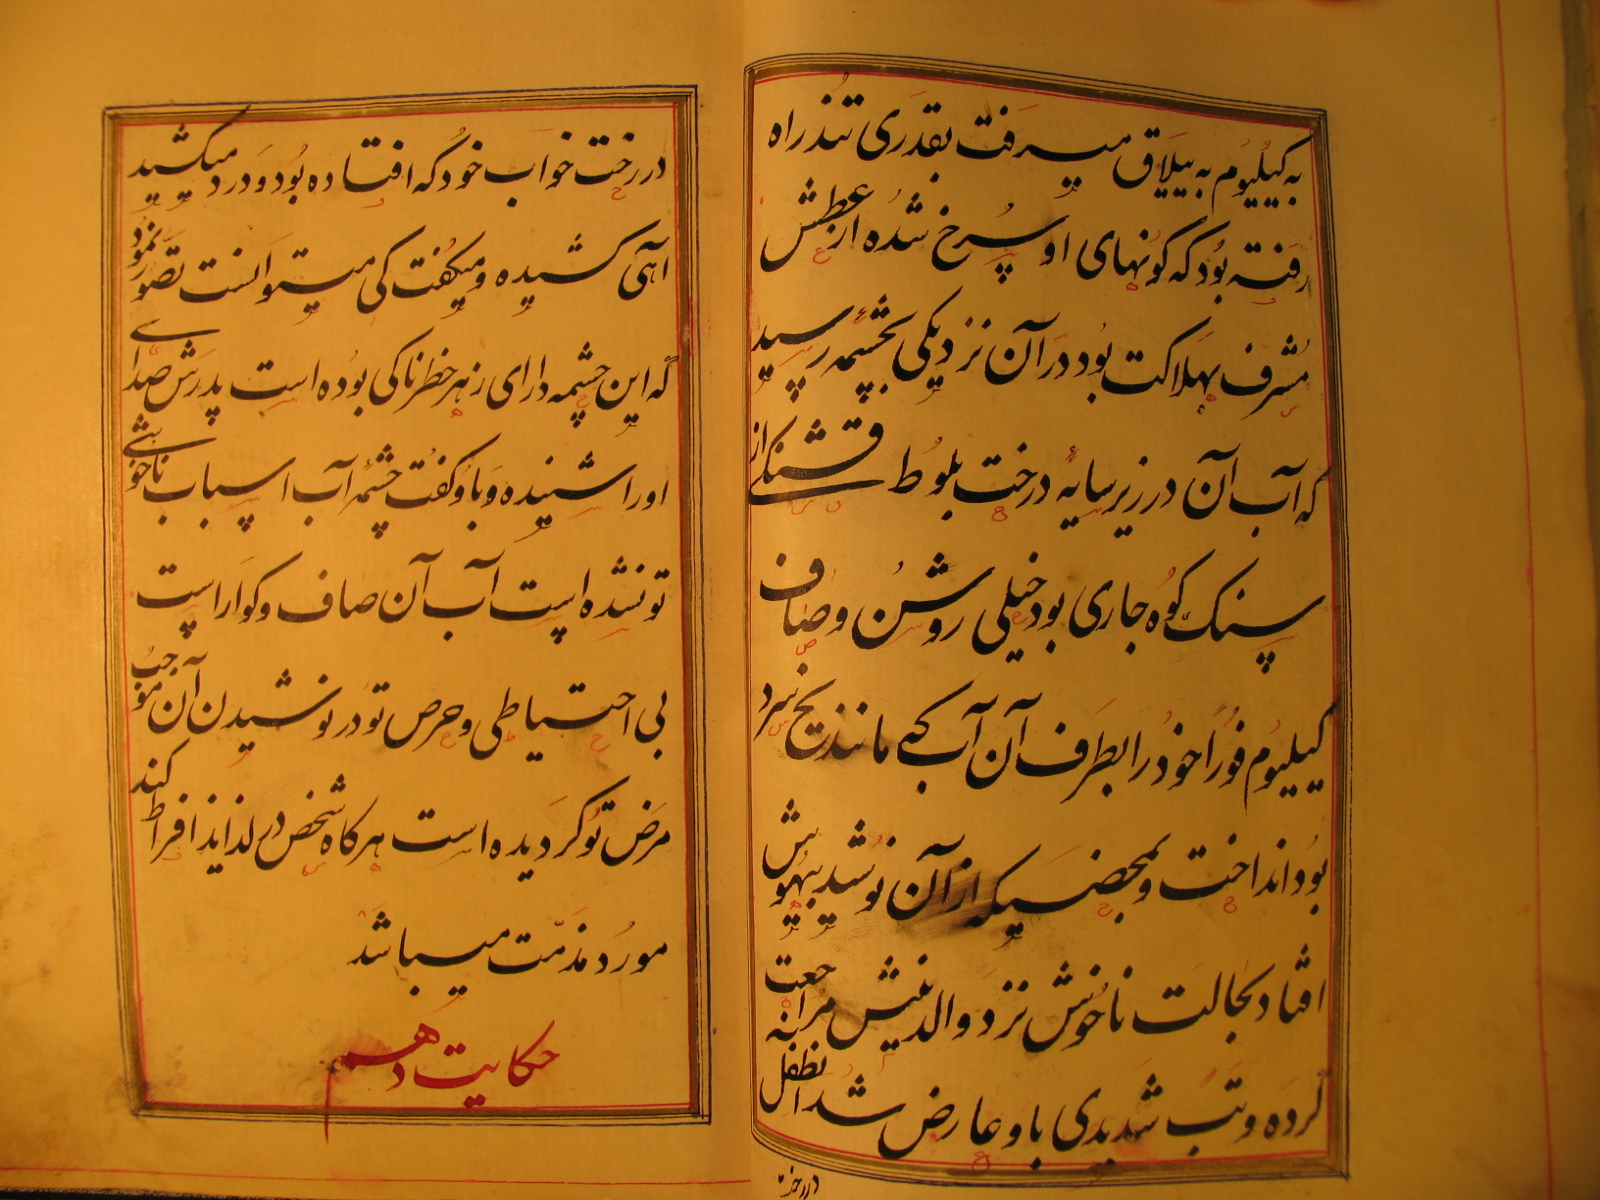 به کیلیوم به ییلاق میرفت بقدری تند راه
رفته بود که کونهای او سرخ شده از عطش
مشرف بهلاکت بود در آن نزدیکی بچشمه رسید
که آب آن در زیر سایه درخت بلوط قشنگی از
سنک کوه جاری بود خیلی روشن و صاف
کیلیوم فوراً خود را بطرف آن آب که مانند یخ سرد
بود انداخت و بمحضیکه از آن نوشید بیهوش
افتاد بحالت ناخوش نزد والدینش مراجعت
کرده و تب شدیدی باو عارض شد انطفل
در رخت
در رخت خواب خود که افتاده بود و درد میکشید
آهی کشیده و میکفت کی میتوانست تصور نمود
که این چشمه دارای زهر خطرناکی بوده است پدرش صدای
او را شنیده و باو کفت چشمه آب اسباب ناخوشی
تو نشده است آب آن صاف و کوارا است
بی احتیاطی و حرص تو در نوشیدن آن موجب
مرض تو کردیده است هر کاه شخص در لذایذ افراط کند
مورد مذمت میباشد
حکایت دهم